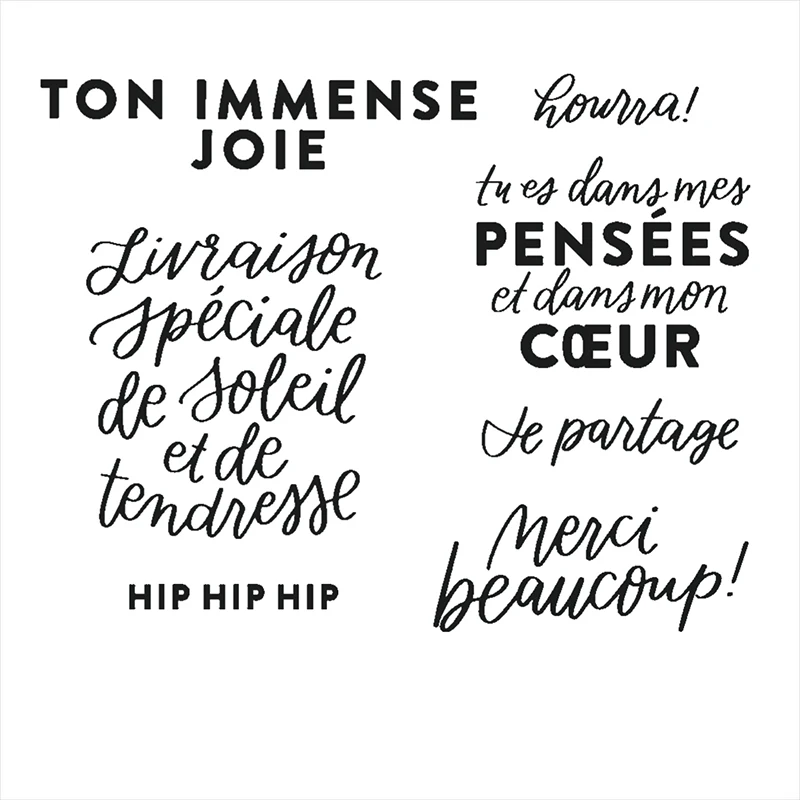 TON IMMENSE
JOIE
Livraison
spéciale
de soleil
et de
tendresse
HIP HIP HIP
hourra!
tu es dans mes
PENSÉES
et dans mon
CŒUR
Je partage
Merci
beaucoup!